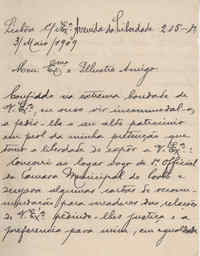 Lisboa C/ Exª Avenida da Liberdade 215-1º
3/Maio/1909
Meu Exmo e Illustre Amigo.
Confiado na extrema bondade de
V. Exª, eu ouso vir incommodal-o,
a pedir-lhe a seu alto patrocinio
em prol da minha pretenção que
tomo a liberdade de expôr a V. Exª:
Concorri ao logar vago de 1º official
da Camara Municipal do Porto e
desejava algumas cartas de recom-
mendação para vereadores das relações
de V. Exª pedindo-lhes justiça e a
preferencia para mim, em egualdade